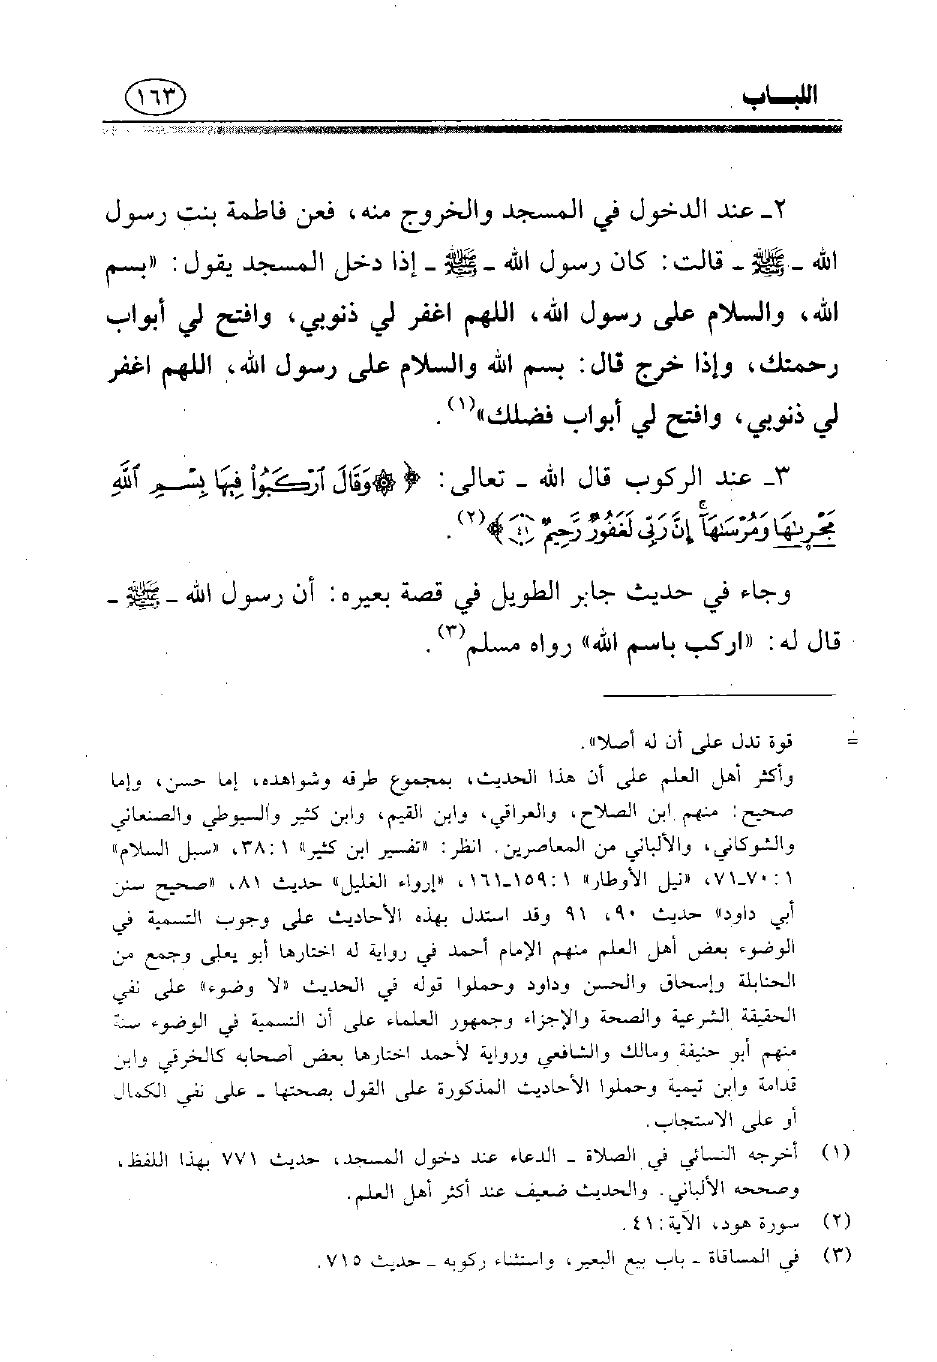 اللبـــاب
١٦٣
٢ـ عند الدخول في المسجد والخروج منه، فعن فاطمة بنت رسول
الله ـ ﷺ ـ قالت: كان رسول الله ـ ﷺ ـ إذا دخل المسجد يقول: «بسم
الله، والسلام على رسول الله، اللهم اغفر لي ذنوبي، وافتح لي أبواب
رحمتك، وإذا خرج قال: بسم الله والسلام على رسول الله، اللهم اغفر
لي ذنوبي، وافتح لي أبواب فضلك»(١).
٣ـ عند الركوب قال الله ـ تعالى: ﴿ ۞ وَقَالَ ٱرْكَبُوا۟ فِيهَا بِسْمِ ٱللَّهِ
مَجْر۪ىٰهَا وَمُرْسَىٰهَآ ۚ إِنَّ رَبِّى لَغَفُورٌ رَّحِيمٌ ٤١ ﴾(٢).
وجاء في حديث جابر الطويل في قصة بعيره: أن رسول الله ـ ﷺ ـ
قال له: «اركب باسم الله» رواه مسلم(٣).
= قوة تدل على أن له أصلا».
وأكثر أهل العلم على أن هذا الحديث، بمجموع طرقه وشواهده، إما حسن، وإما
صحيح: منهم ابن الصلاح، والعراقي، وابن القيم، وابن كثير والسيوطي والصنعاني
والشوكاني، والألباني من المعاصرين. انظر: «تفسير ابن كثير» ١:٣٨، «سبل السلام»
١: ٧٠ـ٧١، «نيل الأوطار» ١: ١٥٩ـ١٦١، «إرواء الغليل» حديث ٨١، «صحيح سنن
أبي داود» حديث ٩٠، ٩١ وقد استدل بهذه الأحاديث على وجوب التسمية في
الوضوء بعض أهل العلم منهم الإمام أحمد في رواية له اختارها أبو يعلى وجمع من
الحنابلة وإسحاق والحسن وداود وحملوا قوله في الحديث «لا وضوء» على نفي
الحقيقة الشرعية والصحة والإجزاء وجمهور العلماء على أن التسمية في الوضوء سنة
منهم أبو حنيفة ومالك والشافعي ورواية لأحمد اختارها بعض أصحابه كالخرقي وابن
قدامة وابن تيمية وحملوا الأحاديث المذكورة على القول بصحتها ـ على نفي الكمال
أو على الاستجاب.
(١) أخرجه النسائي في الصلاة ـ الدعاء عند دخول المسجد، حديث ٧٧١ بهذا اللفظ،
وصححه الألباني. والحديث ضعيف عند أكثر أهل العلم.
(٢) سورة هود، الآية: ٤١.
(٣) في المساقاة ـ باب بيع البعير، واستثناء ركوبه ـ حديث ٧١٥.